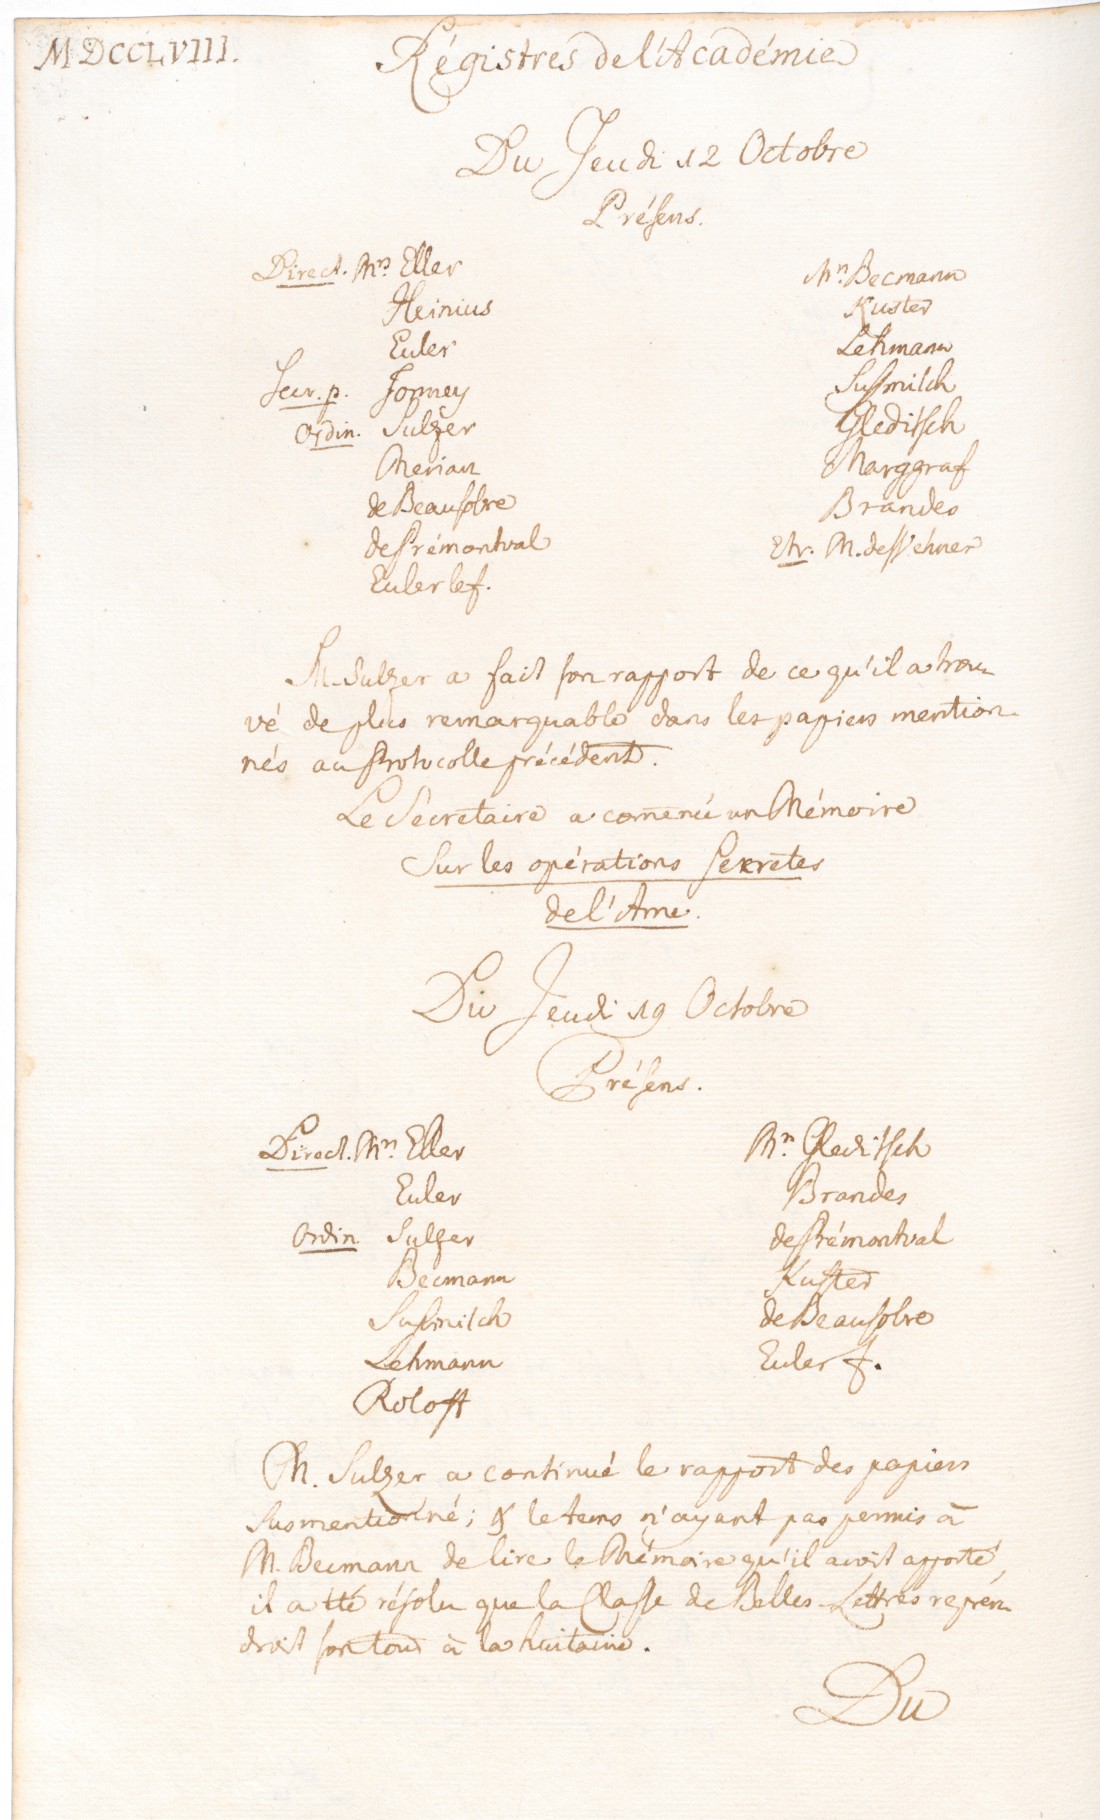 MDCCLVIII.
Régistres de l'Académie
Du Jeudi 12 Octobre
Présens.
Direct. Mrs. Eller
Heinius
Euler
Secr. p. Formey
Ordin. Sulzer
Merian
de Beausobre
de Prémontval
Euler le f.
Mrs. Becmann
Kuster
Lehmann
Susmilch
Gleditsch
Marggraf
Brandes
Etr. M. de
M. Sulzer a fait son rapport de ce qu'il a trou-
vé de plus remarquable dans les papiers mention-
nés au Protocolle précédent.
Le Sécretaire a un Mémoire
Sur les opérations secretes
de l'Ame.
Du Jeudi 19 Octobre
Présens.
Direct. Mrs. Eller
Euler
Ordin. Sulzer
Becmann
Susmilch
Lehmann
Roloff
Mrs. Gleditsch
Brandes
de Prémontval
Kuster
de Beausobre
Euler f.
M. Sulzer a continué le rapport des papiers
susmentionné; & le tems n'ayant pas permis à
M. Becmann de lire le Mémoire qu'il avoit apporté,
il a été résolu que la Classe de Belles-Lettres repren-
droit son tour à la huitaine.
Du